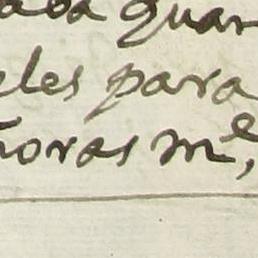 aba quar
eles para
ñoras m^e,